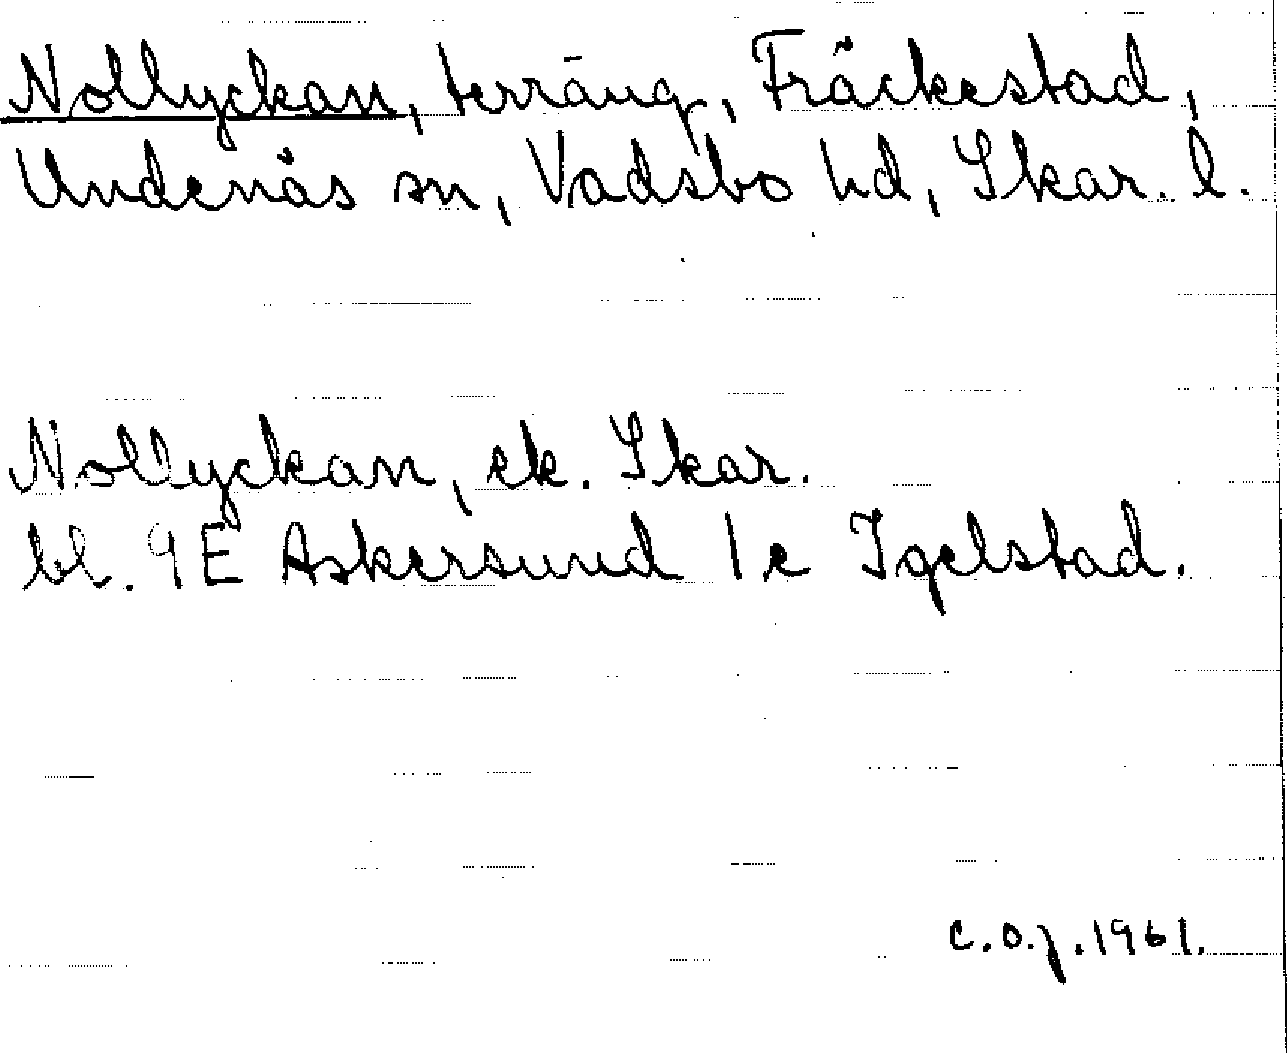 Nollyckan, terräng, Fräckestad,
Undenäs sn, Vadsbo hd, Skar. l.
Nollyckan, ek. Skar.
bl. 9E Askersund 1 e Igelstad.
C.O.J. 1961.